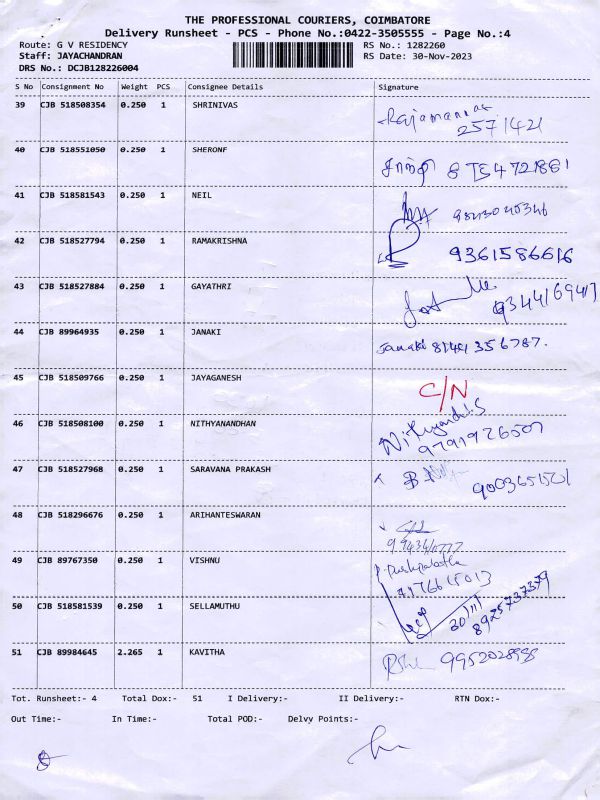 THE PROFESSIONAL COURIERS, COIMBATORE
Delivery Runsheet - PCS - Phone No.:0422-3505555 - Page No.:4
Route: G V RESIDENCY RS No.: 1282260
Staff: JAYACHANDRAN RS Date: 30-Nov-2023
DRS No.: DCJB128226004
S No Consignment No Weight PCS Consignee Details Signature
39 CJB 518508354 0.250 1 SHRINIVAS
2571421
40 CJB 518551050 0.250 1 SHERONF
41 CJB 518581543 0.250 1 NEIL
42 CJB 518527794 0.250 1 RAMAKRISHNA 9361586616
43 CJB 518527884 0.250 1 GAYATHRI
44 CJB 89964935 0.250 1 JANAKI Janaki
45 CJB 518509766 0.250 1 JAYAGANESH C/N
46 CJB 518508100 0.250 1 NITHYANANDHAN
9791926507
47 CJB 518527968 0.250 1 SARAVANA PRAKASH
48 CJB 518296676 0.250 1 ARIHANTESWARAN
49 CJB 89767350 0.250 1 VISHNU
50 CJB 518581539 0.250 1 SELLAMUTHU 30/11 8925737379
51 CJB 89984645 2.265 1 KAVITHA
Tot. Runsheet:- 4 Total Dox:- 51 I Delivery:- II Delivery:- RTN Dox:-
Out Time:- In Time:- Total POD:- Delvy Points:-